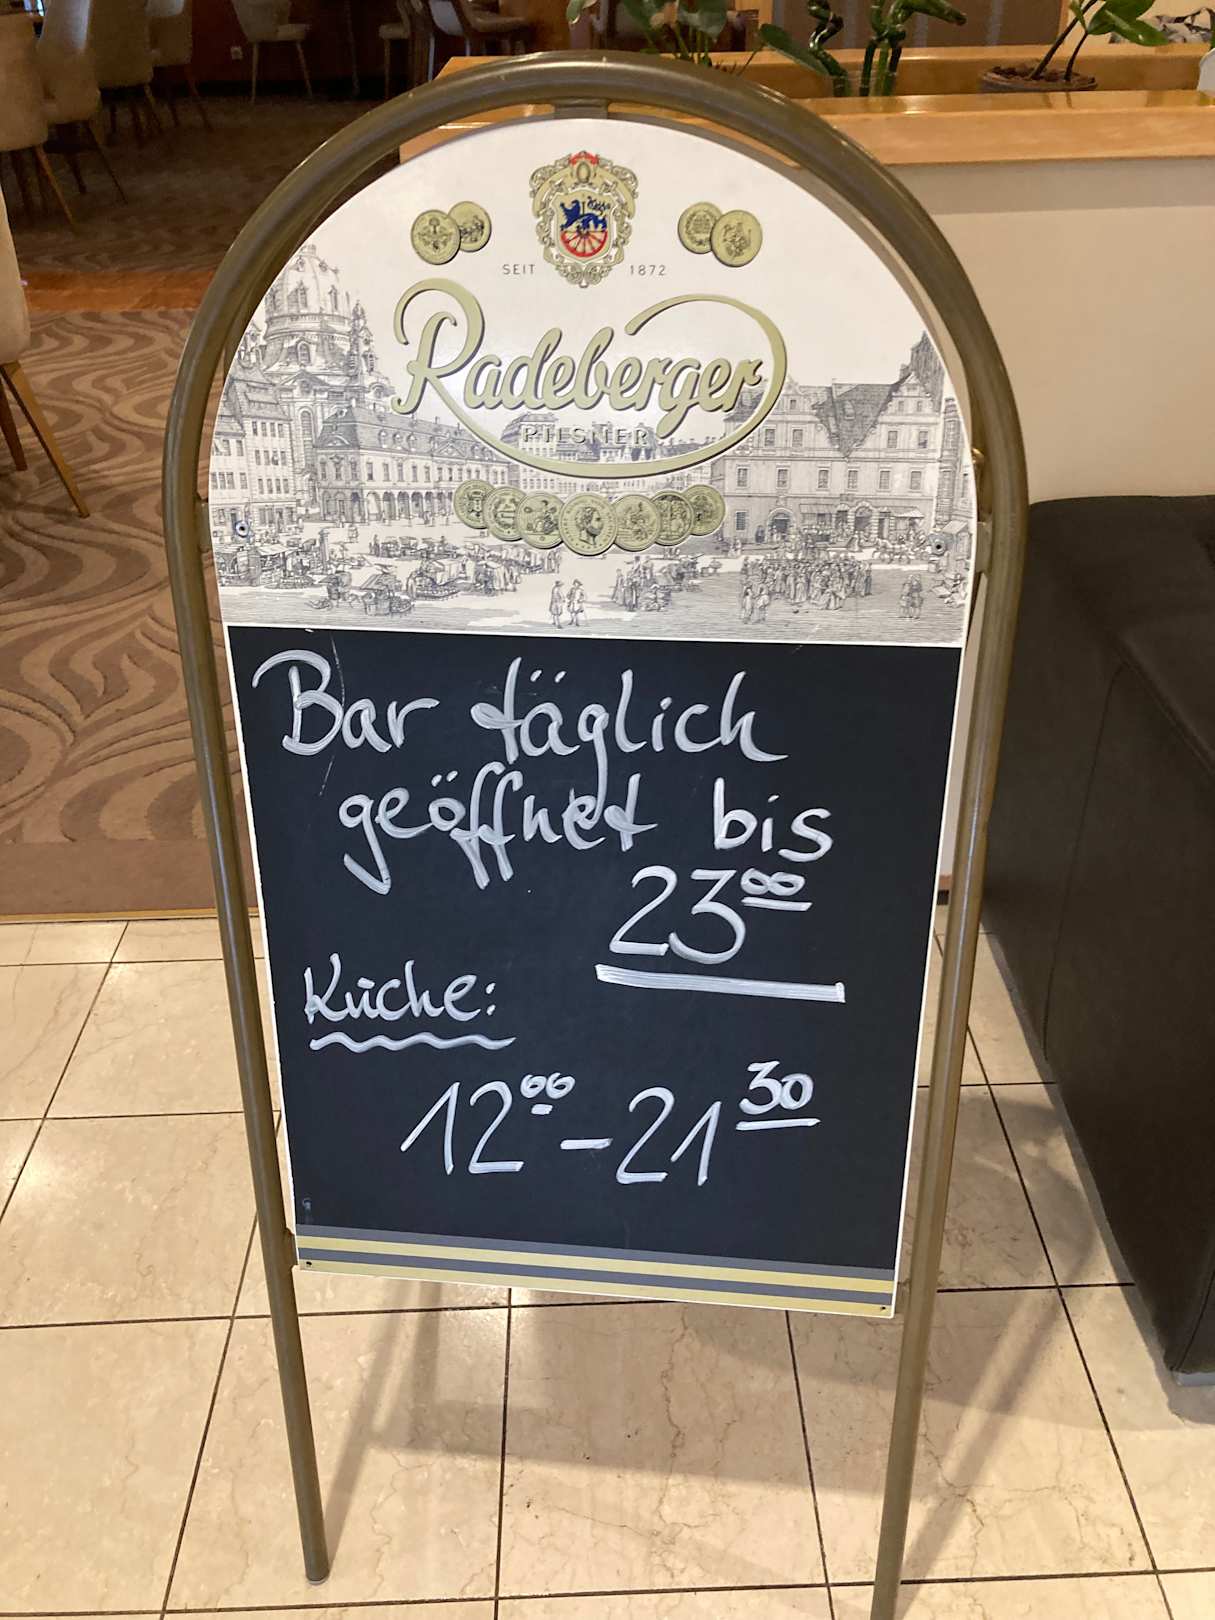 SEIT 1872
Radeberger
PILSNER
Bar täglich
geöffnet bis
23⁰⁰
Küche:
12⁰⁰ - 21³⁰